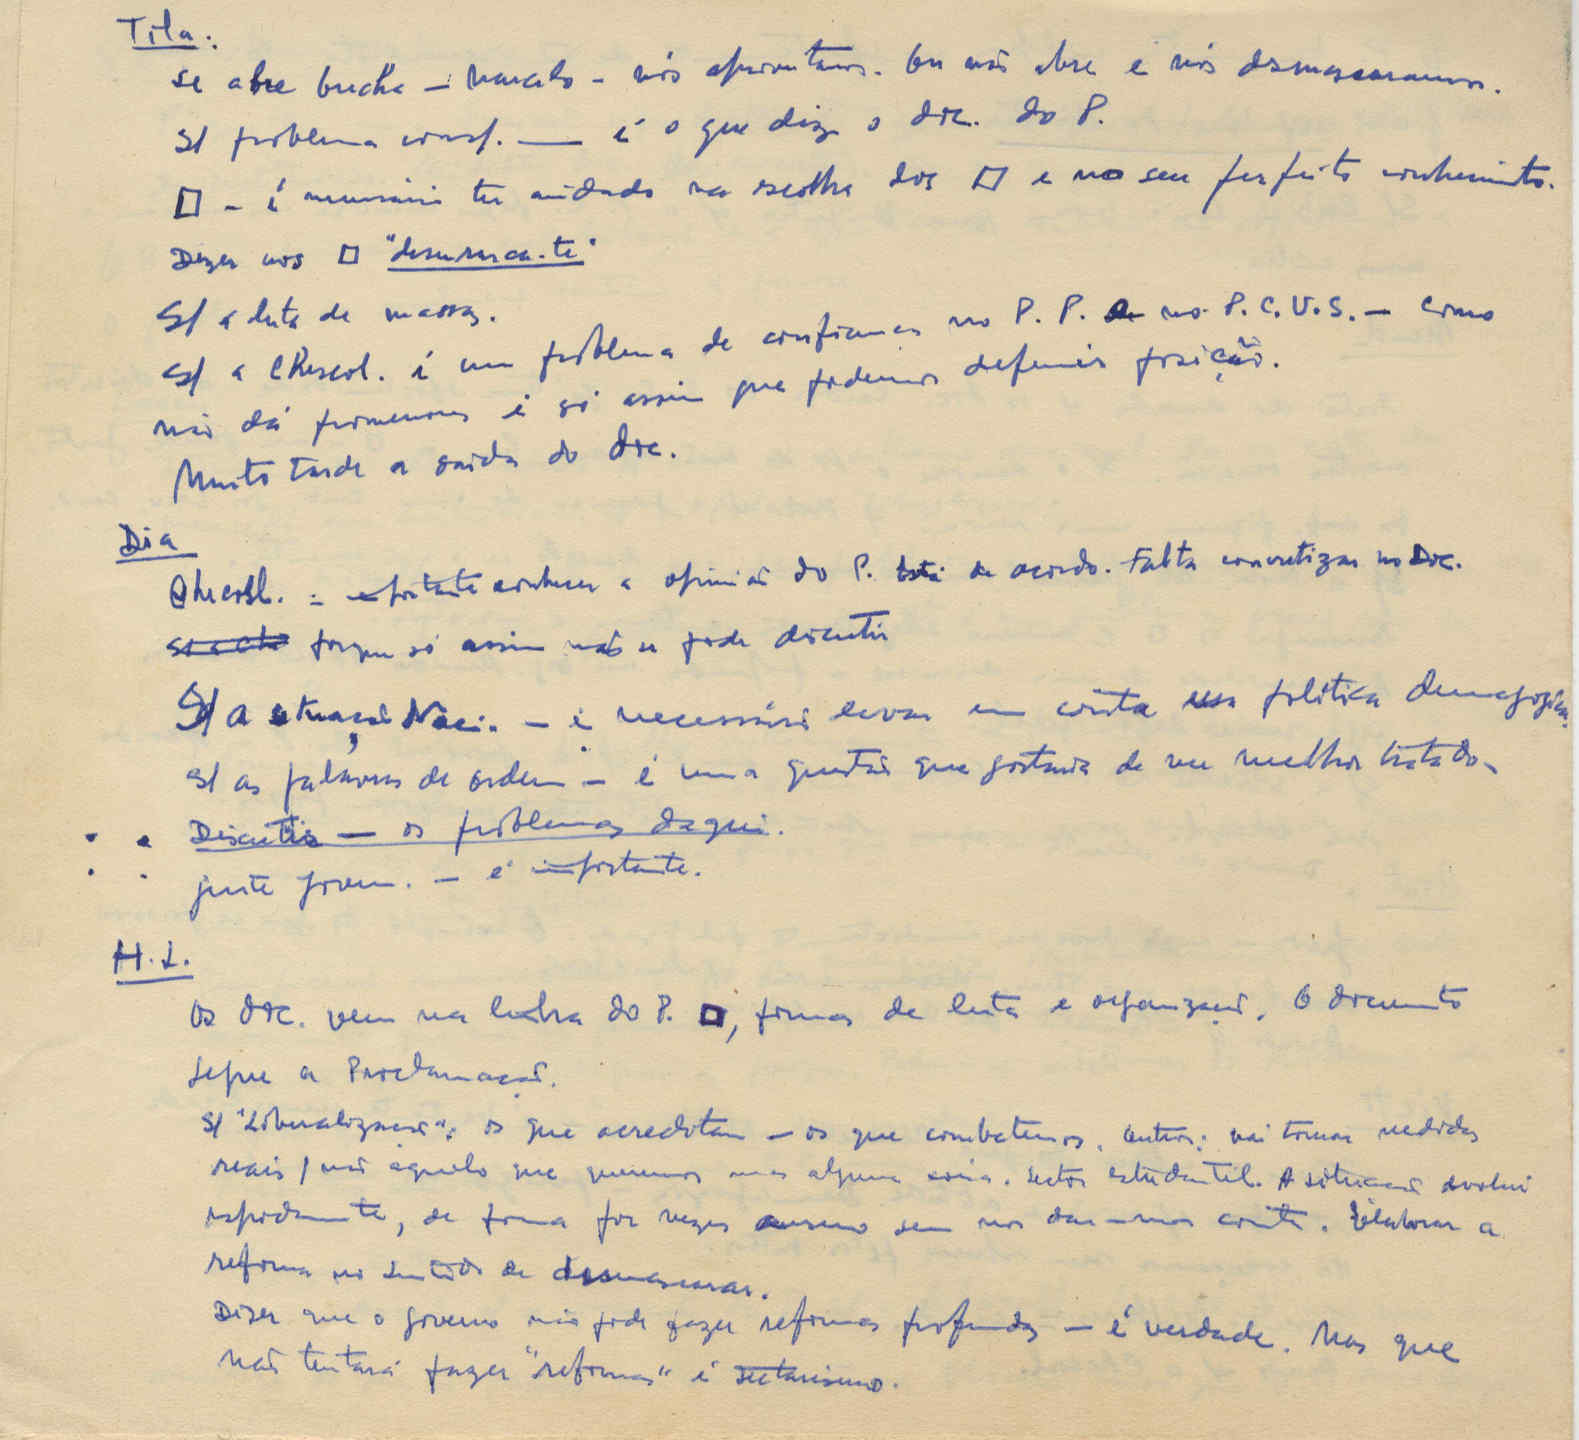 Tila:
se abre brecha – Marcelo – nós aproveitamos. Ou não abre e nós desmascaramos.
S/ problema consp. — é o que diz o doc. do P.
□ – é necessário ter cuidado na escolha dos □ e no seu perfeito conhecimento.
Dizer aos □ "desenrasca-te"
S/ a luta de massas.
S/ a Checosl. é um problema de confiança no P. P. e no P.C.U.S. – como
não dá pormenores é só assim que podemos definir posição.
Muito tarde a saída do doc.
Dia
Checosl. – importante conhecer a opinião do P. Está de acordo. Falta concretizar no Doc.
porque só assim não se pode discutir
S/ a situação Naci. – é necessário levar em conta essa política demagógica.
S/ as palavras de ordem – é uma questão que gostaria de ver melhor tratado.
Discutir – os problemas daqui.
gente jovem. – é importante.
H.L.
Os doc. vem na linha do P. □, formas de luta e organização. O documento
segue a Proclamação.
S/ "Liberalização": os que acreditam – os que combatemos, outros: vai tomar medidas
reais / não aquelo que queremos mas alguma coisa. Sector estudantil. A situação evolui
rapidamente, de forma por vezes mesmo sem nos dar-mos conta. Elaborar a
reforma no sentido de desmascarar.
Dizer que o governo não pode fazer reformas profundas – é verdade. Mas que
não tentará fazer "reformas" é sectarismo.